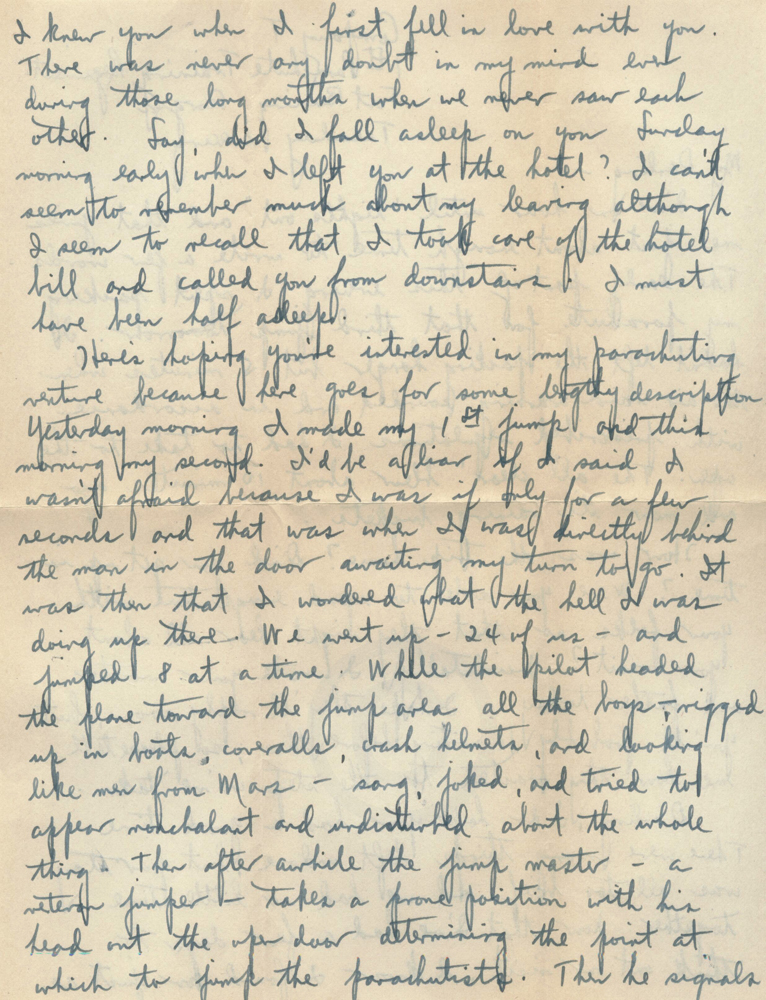 I knew you when I first fell in love with you.
There was never any doubt in my mind even
during those long months when we never saw each
other. Say, did I fall asleep on you Sunday
morning early when I left you at the hotel? I can't
seem to remember much about my leaving although
I seem to recall that I took care of the hotel
bill and called you from downstairs. I must
have been half asleep.
Here's hoping you're interested in my parachuting
venture because here goes for some lengthy description
Yesterday morning I made my 1st jump and this
morning my second. I'd be a liar if I said I
wasn't afraid because I was if only for a few
seconds and that was when I was directly behind
the man in the door awaiting my turn to go. It
was then that I wondered what the hell I was
doing up there. We went up - 24 of us - and
jumped 8 at a time. While the pilot headed
the plane toward the jump area all the boys - rigged
up in boots, coveralls, crash helmets, and looking
like men from Mars - sang, joked, and tried to
appear nonchalant and undisturbed about the whole
thing. Then after awhile the jump master - a
veteran jumper - takes a prone position with his
head out the open door determining the point at
which to jump the parachutists. Then he signals